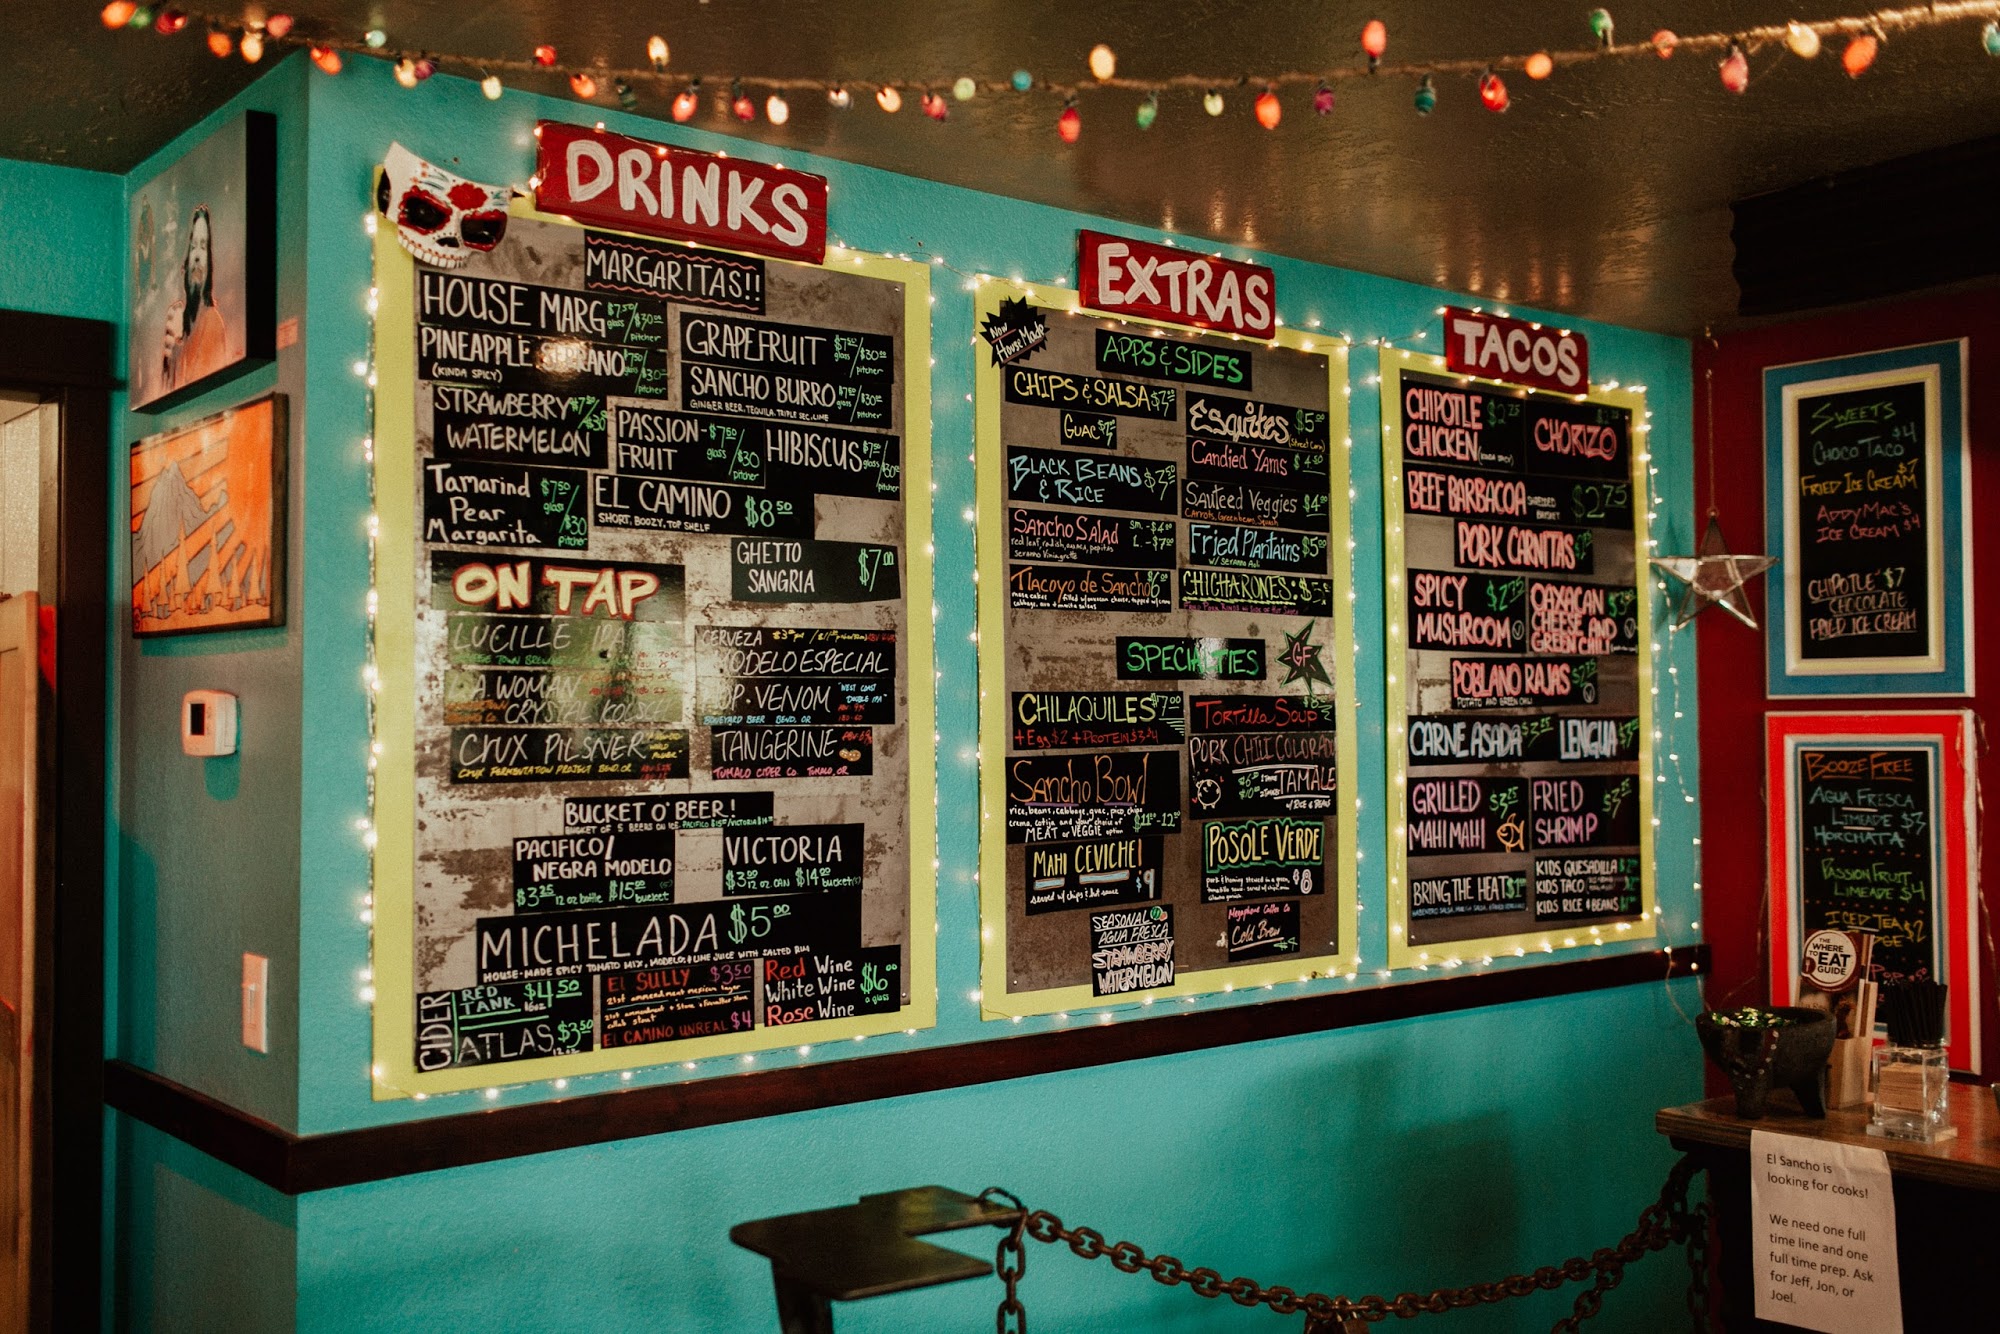 DRINKS
MARGARITAS!!
HOUSE MARG $7.50 glass/$30.00 pitcher
PINEAPPLE SERRANO $7.50 glass/$30 pitcher
(KINDA SPICY)
GRAPEFRUIT $7.50 glass/$30.00 pitcher
SANCHO BURRO $7.50 glass/$30.00 pitcher
GINGER BEER, TEQUILA, TRIPLE SEC, LIME
STRAWBERRY $7.50/$30
WATERMELON
PASSION-
FRUIT $7.50 glass/$30 pitcher
HIBISCUS $7.50 glass/$30.00 pitcher
Tamarind
Pear
Margarita $7.50 glass/$30 pitcher
EL CAMINO $8.50
SHORT, BOOZY, TOP SHELF
GHETTO
SANGRIA $7.00
ON TAP
LUCILLE IPA
L.A. WOMAN
CRYSTAL KOLSCH
CRUX PILSNER
CRUX FERMENTATION PROJECT BEND, OR
CERVEZA
MODELO ESPECIAL
POP·VENOM "WEST COAST DOUBLE IPA"
BONEYARD BEER BEND, OR
TANGERINE
TUMALO CIDER CO. TUMALO, OR
BUCKET O' BEER!
BUCKET OF 5 BEERS ON ICE
PACIFICO/
NEGRA MODELO
$3.25 12 oz bottle $15.00 bucket
VICTORIA
$3.00 12 oz CAN $14.00 bucket
MICHELADA $5.00
HOUSE-MADE SPICY TOMATO MIX, MODELO & LIME JUICE WITH SALTED RIM
CIDER
RED TANK $4.50 16oz
ATLAS $3.50 12oz
El SULLY $3.50
21st ammendment mexican lager
EL CAMINO UNREAL $4
Red Wine
White Wine
Rose Wine
$6.00 a glass
EXTRAS
NOW House Made
APPS & SIDES
CHIPS & SALSA
GUAC
BLACK BEANS
& RICE
SANCHO SALAD sm. -$4.00 L. -$7.00
Tlacoyo de Sancho
Esquites $5.00
(Street Corn)
Candied Yams $4.50
Sauteed Veggies $4.00
Carrots, Greenbeans, Squash
Fried Plantains $5.00
CHICHARONES:
SPECIALTIES
GF
CHILAQUILES $7.00
+Egg $2 +PROTEIN $3.4
Sancho Bowl
rice, beans, cabbage, guac, pico, chips
crema, cotija and your choice of
MEAT or VEGGIE option $11.00-12.00
MAHI CEVICHE!
served w/ chips & hot sauce $9
SEASONAL
AGUA FRESCA
STRAWBERRY
WATERMELON
TORTILLA SOUP
PORK CHILI COLORADO
TAMALE
w/ RICE & BEANS
POSOLE VERDE
$8
Megaphone Coffee Co
Cold Brew
$4
TACOS
CHIPOTLE
CHICKEN $2.75
CHORIZO
BEEF BARBACOA SHREDDED BRISKET $2.75
PORK CARNITAS
SPICY
MUSHROOM $2.75
OAXACAN
CHEESE AND
GREEN CHILI
POBLANO RAJAS
POTATO AND GREEN CHILI
CARNE ASADA $3.25
LENGUA
GRILLED
MAHI MAHI $3.25
FRIED
SHRIMP $3.25
BRING THE HEAT
KIDS QUESADILLA
KIDS TACO
KIDS RICE & BEANS
SWEETS
CHOCO TACO $4
FRIED ICE CREAM $7
ADDY MAC'S
ICE CREAM $4
CHIPOTLE $7
CHOCOLATE
FRIED ICE CREAM
BOOZE FREE
AGUA FRESCA
LIMEADE $3
HORCHATA
PASSION FRUIT
LIMEADE $4
ICED TEA $2
THE
WHERE
TO EAT
GUIDE
El Sancho is
looking for cooks!
We need one full
time line and one
full time prep. Ask
for Jeff, Jon, or
Joel.